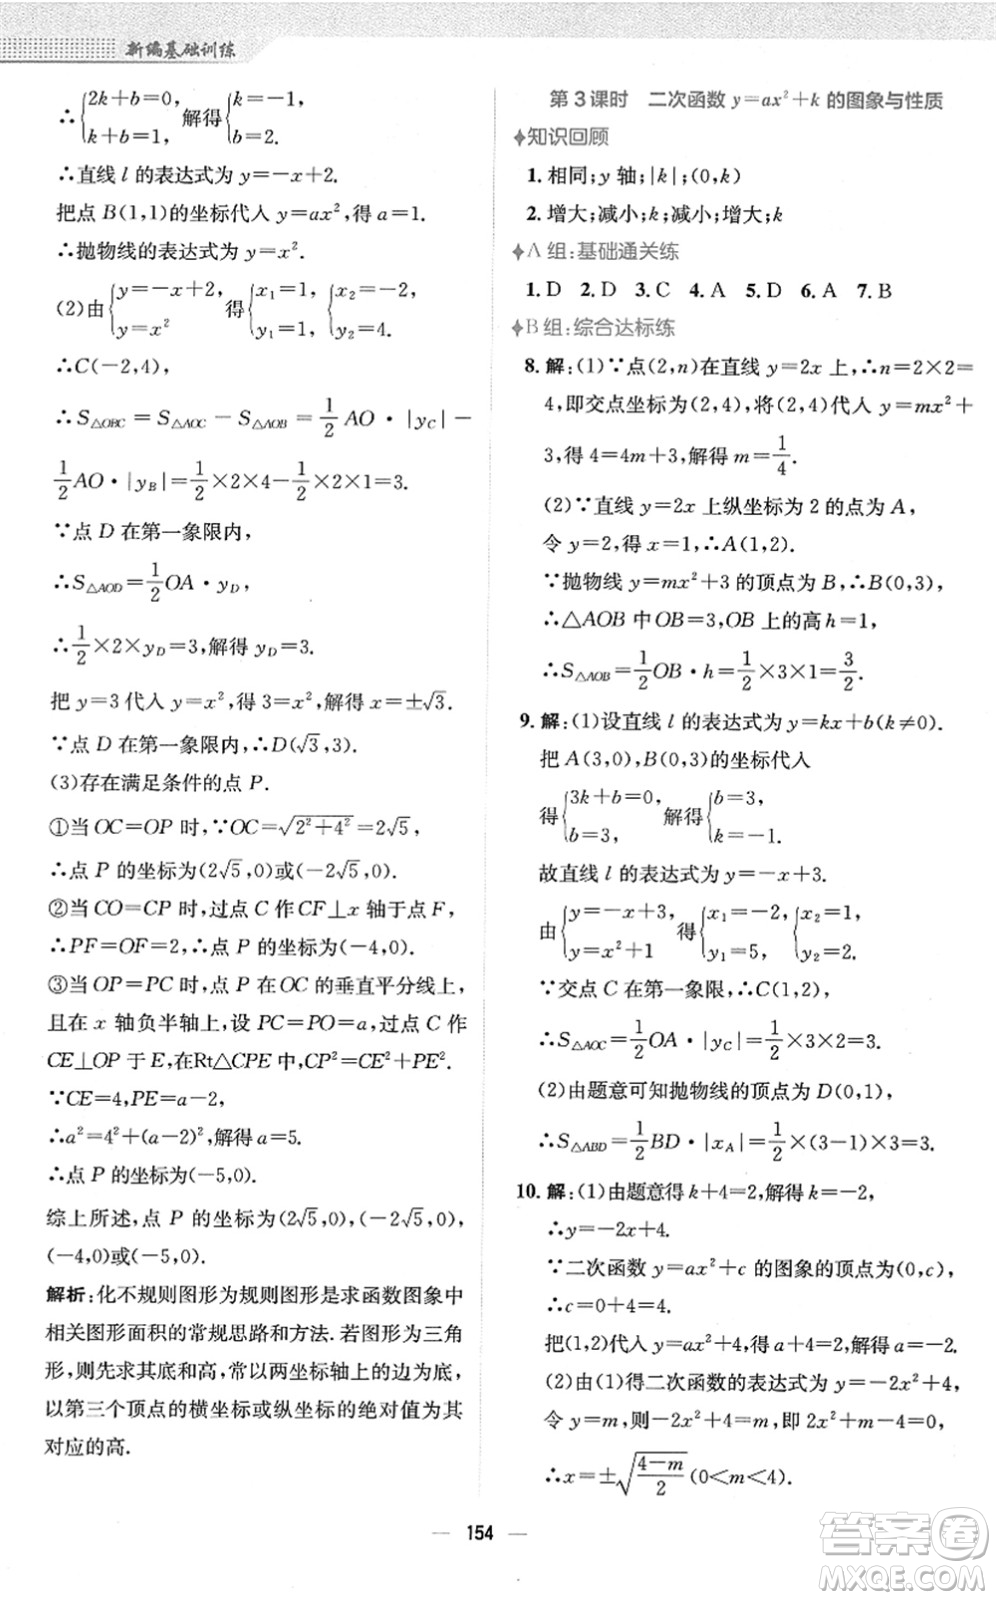 新编基础训练
∴{2k+b=0, k+b=1, 解得{k=-1, b=2.
∴直线 l 的表达式为 y=-x+2.
把点 B(1,1)的坐标代入 y=ax²,得 a=1.
∴抛物线的表达式为 y=x².
(2)由{y=-x+2, y=x² 得{x₁=1, y₁=1, {x₂=-2, y₂=4,
∴C(-2,4),
∴S△OBC=S△AOC-S△AOB=1/2 AO·|y_C|-
1/2 AO·|y_B|=1/2×2×4-1/2×2×1=3.
∵点 D 在第一象限内,
∴S△AOD=1/2 OA·y_D,
∴1/2×2×y_D=3,解得 y_D=3.
把 y=3 代入 y=x²,得 3=x²,解得 x=±√3.
∵点 D 在第一象限内,∴D(√3,3).
(3)存在满足条件的点 P.
①当 OC=OP 时,∵OC=√(2²+4²)=2√5,
∴点 P 的坐标为(2√5,0)或(-2√5,0).
②当 CO=CP 时,过点 C 作 CF⊥x 轴于点 F,
∴PF=OF=2,∴点 P 的坐标为(-4,0).
③当 OP=PC 时,点 P 在 OC 的垂直平分线上,
且在 x 轴负半轴上,设 PC=PO=a,过点 C 作
CE⊥OP 于 E,在Rt△CPE 中,CP²=CE²+PE².
∵CE=4,PE=a-2,
∴a²=4²+(a-2)²,解得 a=5.
∴点 P 的坐标为(-5,0).
综上所述,点 P 的坐标为(2√5,0),(-2√5,0),
(-4,0)或(-5,0).
解析:化不规则图形为规则图形是求函数图象中
相关图形面积的常规思路和方法.若图形为三角
形,则先求其底和高,常以两坐标轴上的边为底,
以第三个顶点的横坐标或纵坐标的绝对值为其
对应的高.
第 3 课时 二次函数 y=ax²+k 的图象与性质
知识回顾
1. 相同;y 轴;|k|;(0,k)
2. 增大;减小;k;减小;增大;k
A 组:基础通关练
1. D 2. D 3. C 4. A 5. D 6. A 7. B
B 组:综合达标练
8. 解:(1)∵点(2,n)在直线 y=2x 上,∴n=2×2=
4,即交点坐标为(2,4),将(2,4)代入 y=mx²+
3,得 4=4m+3,解得 m=1/4.
(2)∵直线 y=2x 上纵坐标为 2 的点为 A,
令 y=2,得 x=1,∴A(1,2).
∵抛物线 y=mx²+3 的顶点为 B,∴B(0,3),
∴△AOB 中 OB=3,OB 上的高 h=1,
∴S△AOB=1/2 OB·h=1/2×3×1=3/2.
9. 解:(1)设直线 l 的表达式为 y=kx+b(k≠0).
把 A(3,0),B(0,3)的坐标代入
得{3k+b=0, b=3, 解得{b=3, k=-1.
故直线 l 的表达式为 y=-x+3.
由{y=-x+3, y=x²+1 得{x₁=-2, y₁=5, {x₂=1, y₂=2.
∵交点 C 在第一象限,∴C(1,2),
∴S△AOC=1/2 OA·|y_C|=1/2×3×2=3.
(2)由题意可知抛物线的顶点为 D(0,1),
∴S△ABD=1/2 BD·|x_A|=1/2×(3-1)×3=3.
10. 解:(1)由题意得 k+4=2,解得 k=-2,
∴y=-2x+4.
∵二次函数 y=ax²+c 的图象的顶点为(0,c),
∴c=0+4=4.
把(1,2)代入 y=ax²+4,得 a+4=2,解得 a=-2.
(2)由(1)得二次函数的表达式为 y=-2x²+4,
令 y=m,则-2x²+4=m,即 2x²+m-4=0,
∴x=±√((4-m)/2)(0<m<4).
154
答案圈
MXQE.COM